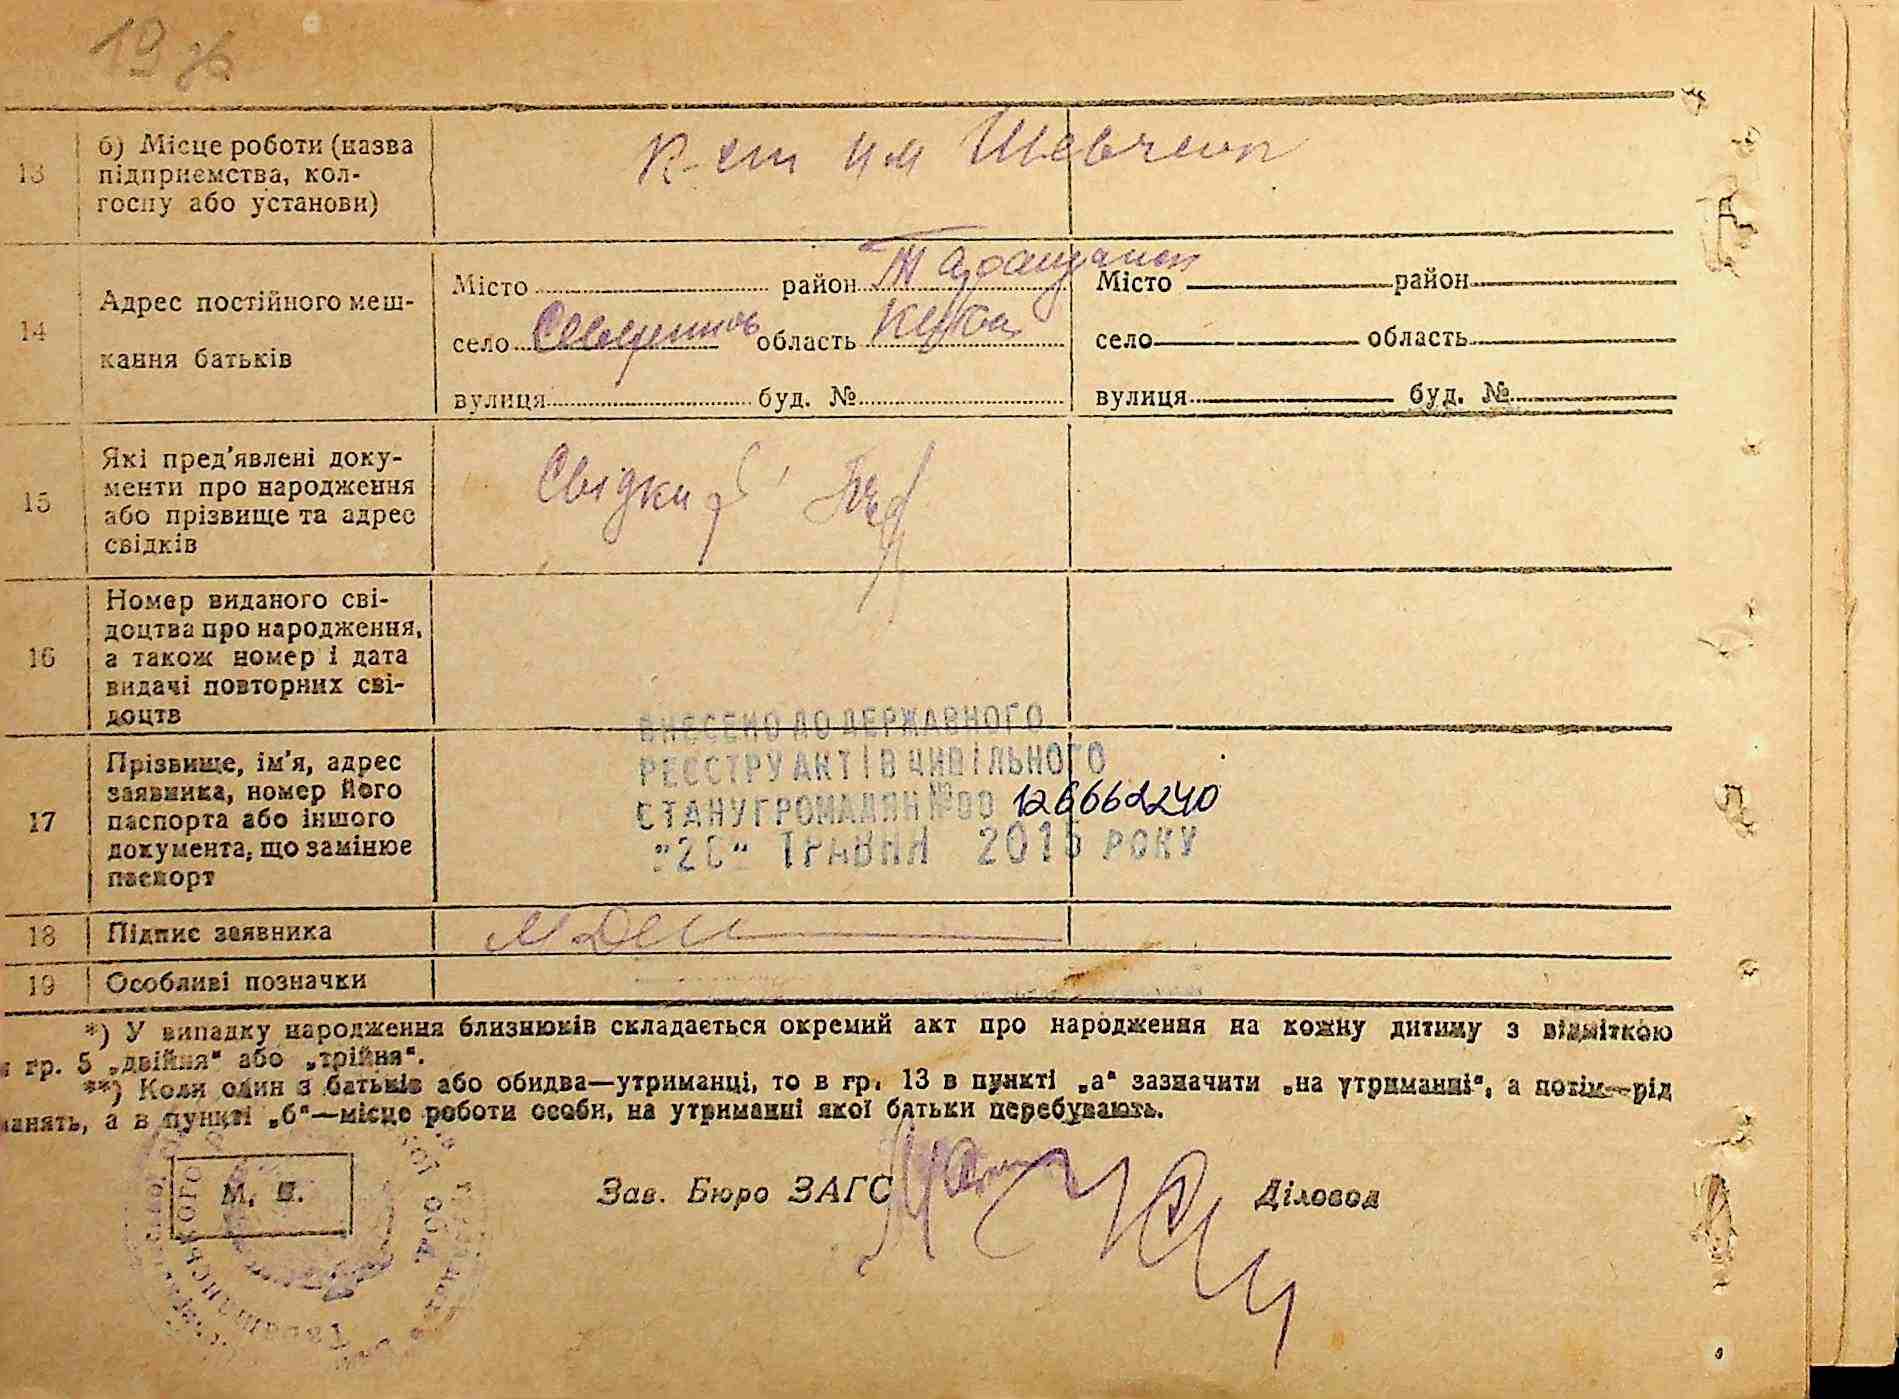 19
13 б) Місце роботи (назва підприємства, колгоспу або установи)
К-сп им Шевченк
14 Адрес постійного мешкання батьків
Місто район Таращанськ Місто район
село область Київськ село область
вулиця буд. № вулиця буд. №
15 Які пред'явлені документи про народження або прізвище та адрес свідків
Свідки
16 Номер виданого свідоцтва про народження, а також номер і дата видачі повторних свідоцтв
17 Прізвище, ім'я, адрес заявника, номер його паспорта або іншого документа, що замінює паспорт
ВНЕСЕНО ДО ДЕРЖАВНОГО
РЕЄСТРУ АКТІВ ЦИВІЛЬНОГО
СТАНУ ГРОМАДЯН №00 126662240
"26" ТРАВНЯ 2015 РОКУ
18 Підпис заявника
19 Особливі позначки
*) У випадку народження близнюків складається окремий акт про народження на кожну дитину з відміткою
гр. 5 „двійня“ або „трійня“.
**) Коли один з батьків або обидва—утриманці, то в гр. 13 в пункті „а“ зазначити „на утриманні“, а потім—рід
а в пункті „б“—місце роботи особи, на утриманні якої батьки перебувають.
М. П.
Зав. Бюро ЗАГС Діловод